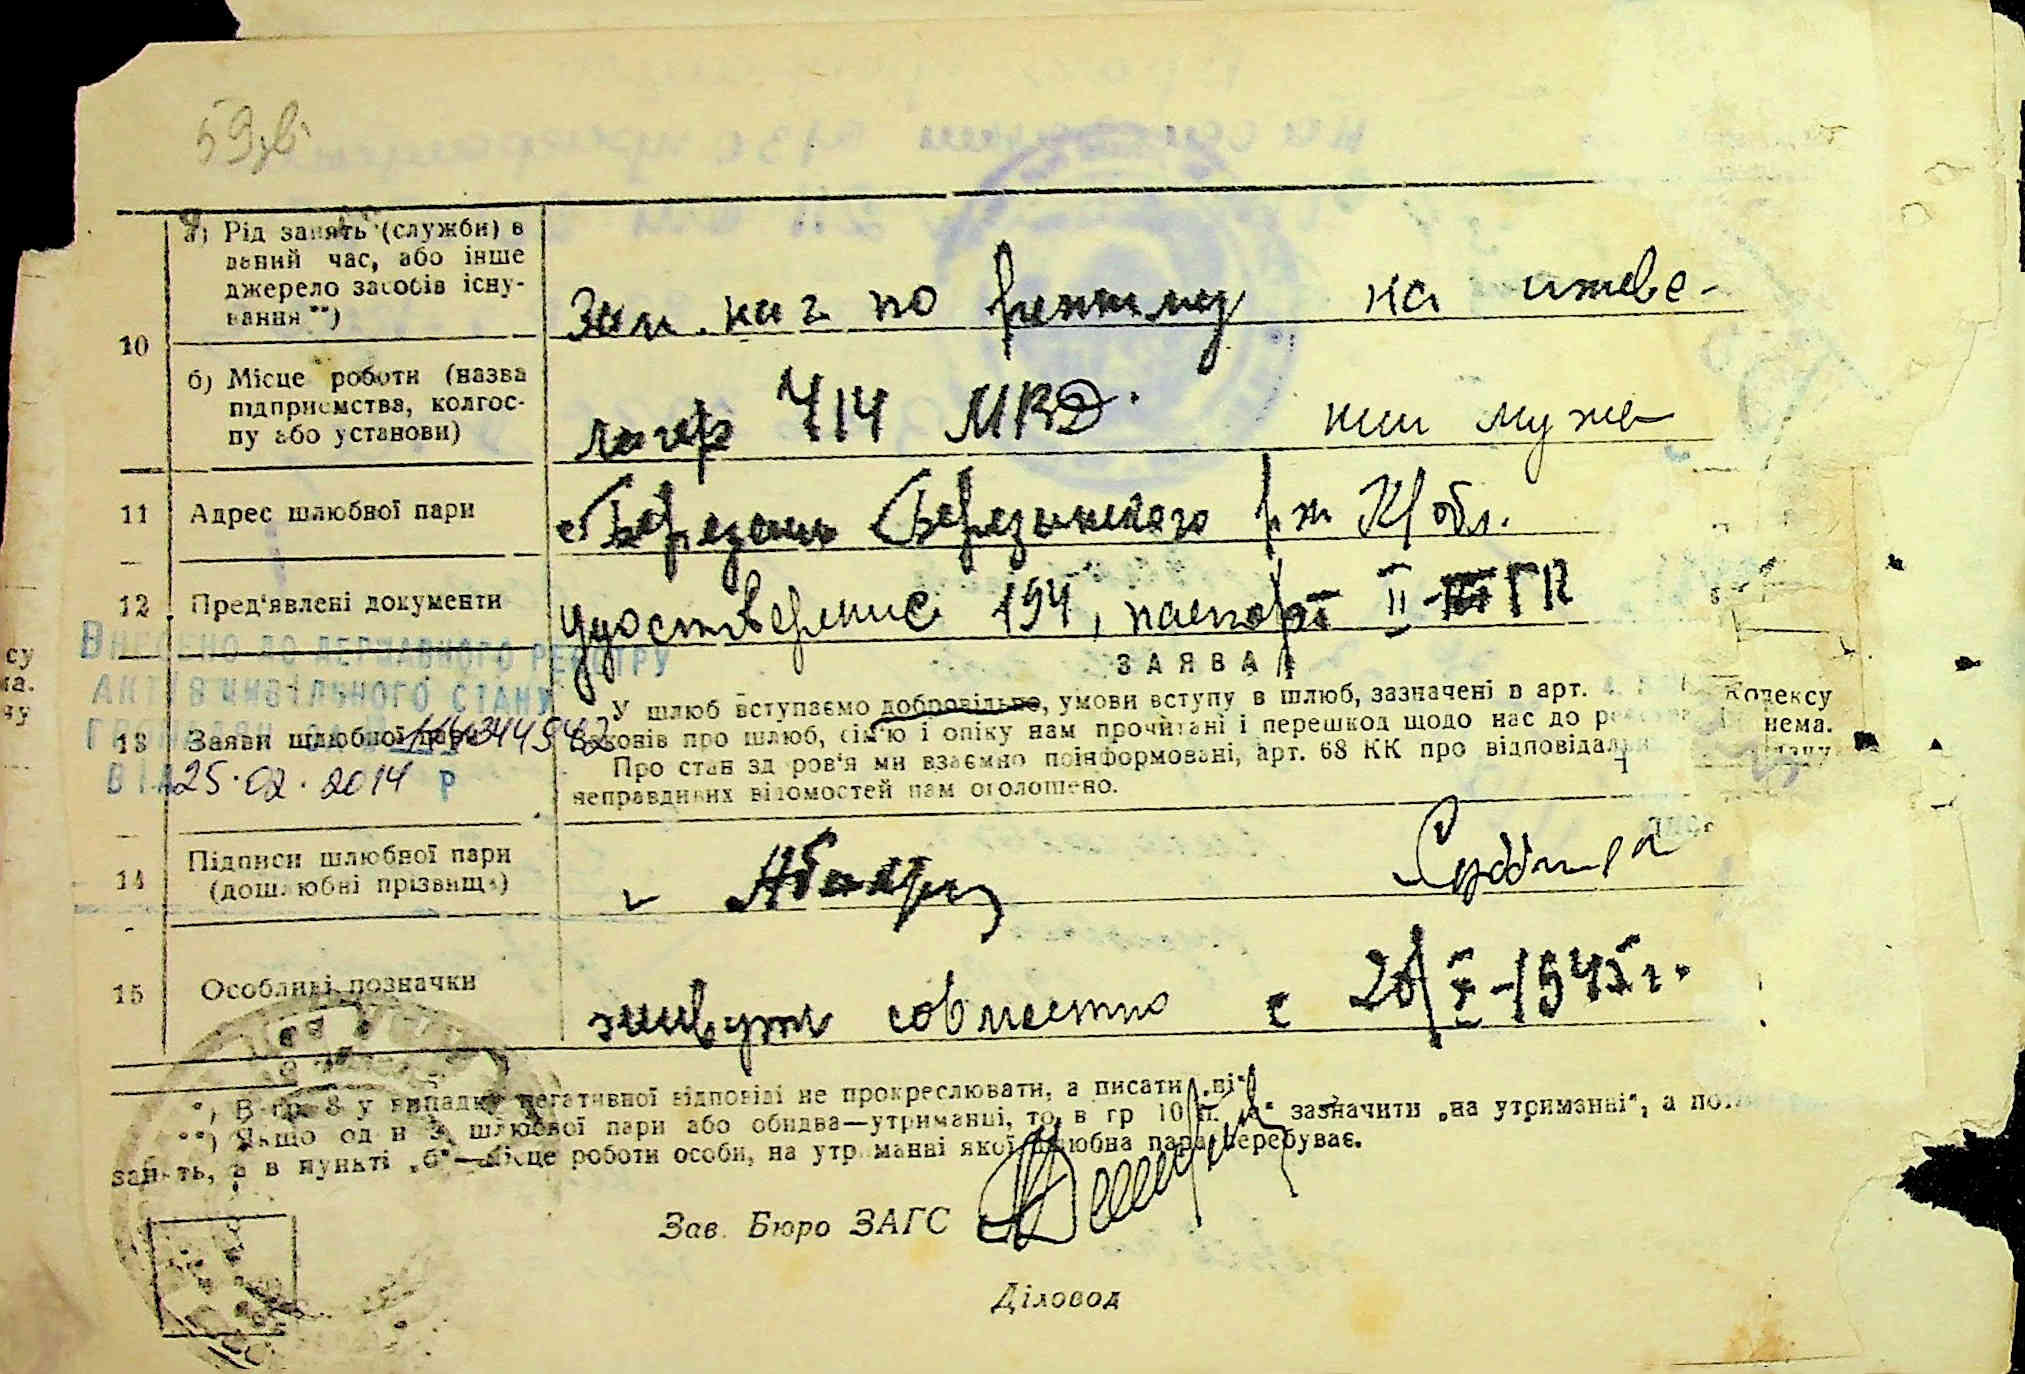 59зв
а) Рід занять (служби) в даний час, або інше джерело засобів існування **)
Зам. нач по режиму на иждеве-
10
б) Місце роботи (назва підприємства, колгоспу або установи)
лагер 414 МВД. нии мужа
11 Адрес шлюбної пари
с Березань Березанского р-н К/обл.
12 Пред'явлені документи
удостверение 194, паспорт II ГК
ВНЕСЕНО ДО ДЕРЖАВНОГО РЕЄСТРУ
АКТІВ ЦИВІЛЬНОГО СТАНУ
ГРОМАДЯН ЗА №
ВІД 25.02.2014 Р
ЗАЯВА
13 Заяви шлюбної пари
У шлюб вступаємо добровільно, умови вступу в шлюб, зазначені в арт. Кодексу
Законів про шлюб, сім'ю і опіку нам прочитані і перешкод щодо нас до нема.
Про стан здоров'я ми взаємно поінформовані, арт. 68 КК про
неправдивих відомостей нам оголошено.
14 Підписи шлюбної пари (дошлюбні прізвища)
15 Особливі позначки
живут совместно с 20/X-1945 г.
*) В гр. 8 у випадку негативної відповіді не прокреслювати, а писати „ні“
**) Якщо один з шлюбної пари або обидва—утриманці, то в гр 10 п. „а“ зазначити „на утриманні“, а
занять, а в пункті „б“—місце роботи особи, на утриманні якої шлюбна пара перебуває.
Зав. Бюро ЗАГС
Діловод